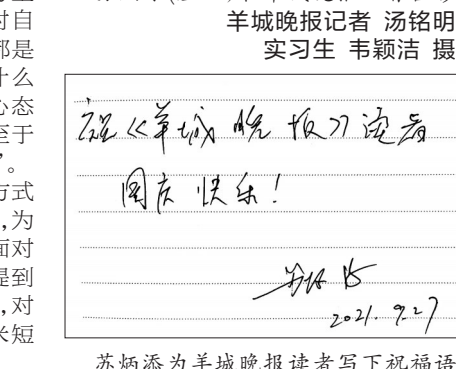 对自
都是
什么
心态
至于
”。
方式
,为
面对
提到
,对
米短
羊城晚报记者 汤铭明
实习生 韦颖洁 摄
祝《羊城晚报》读者
国庆快乐!
苏炳添
2021. 9.27
苏炳添为羊城晚报读者写下祝福语